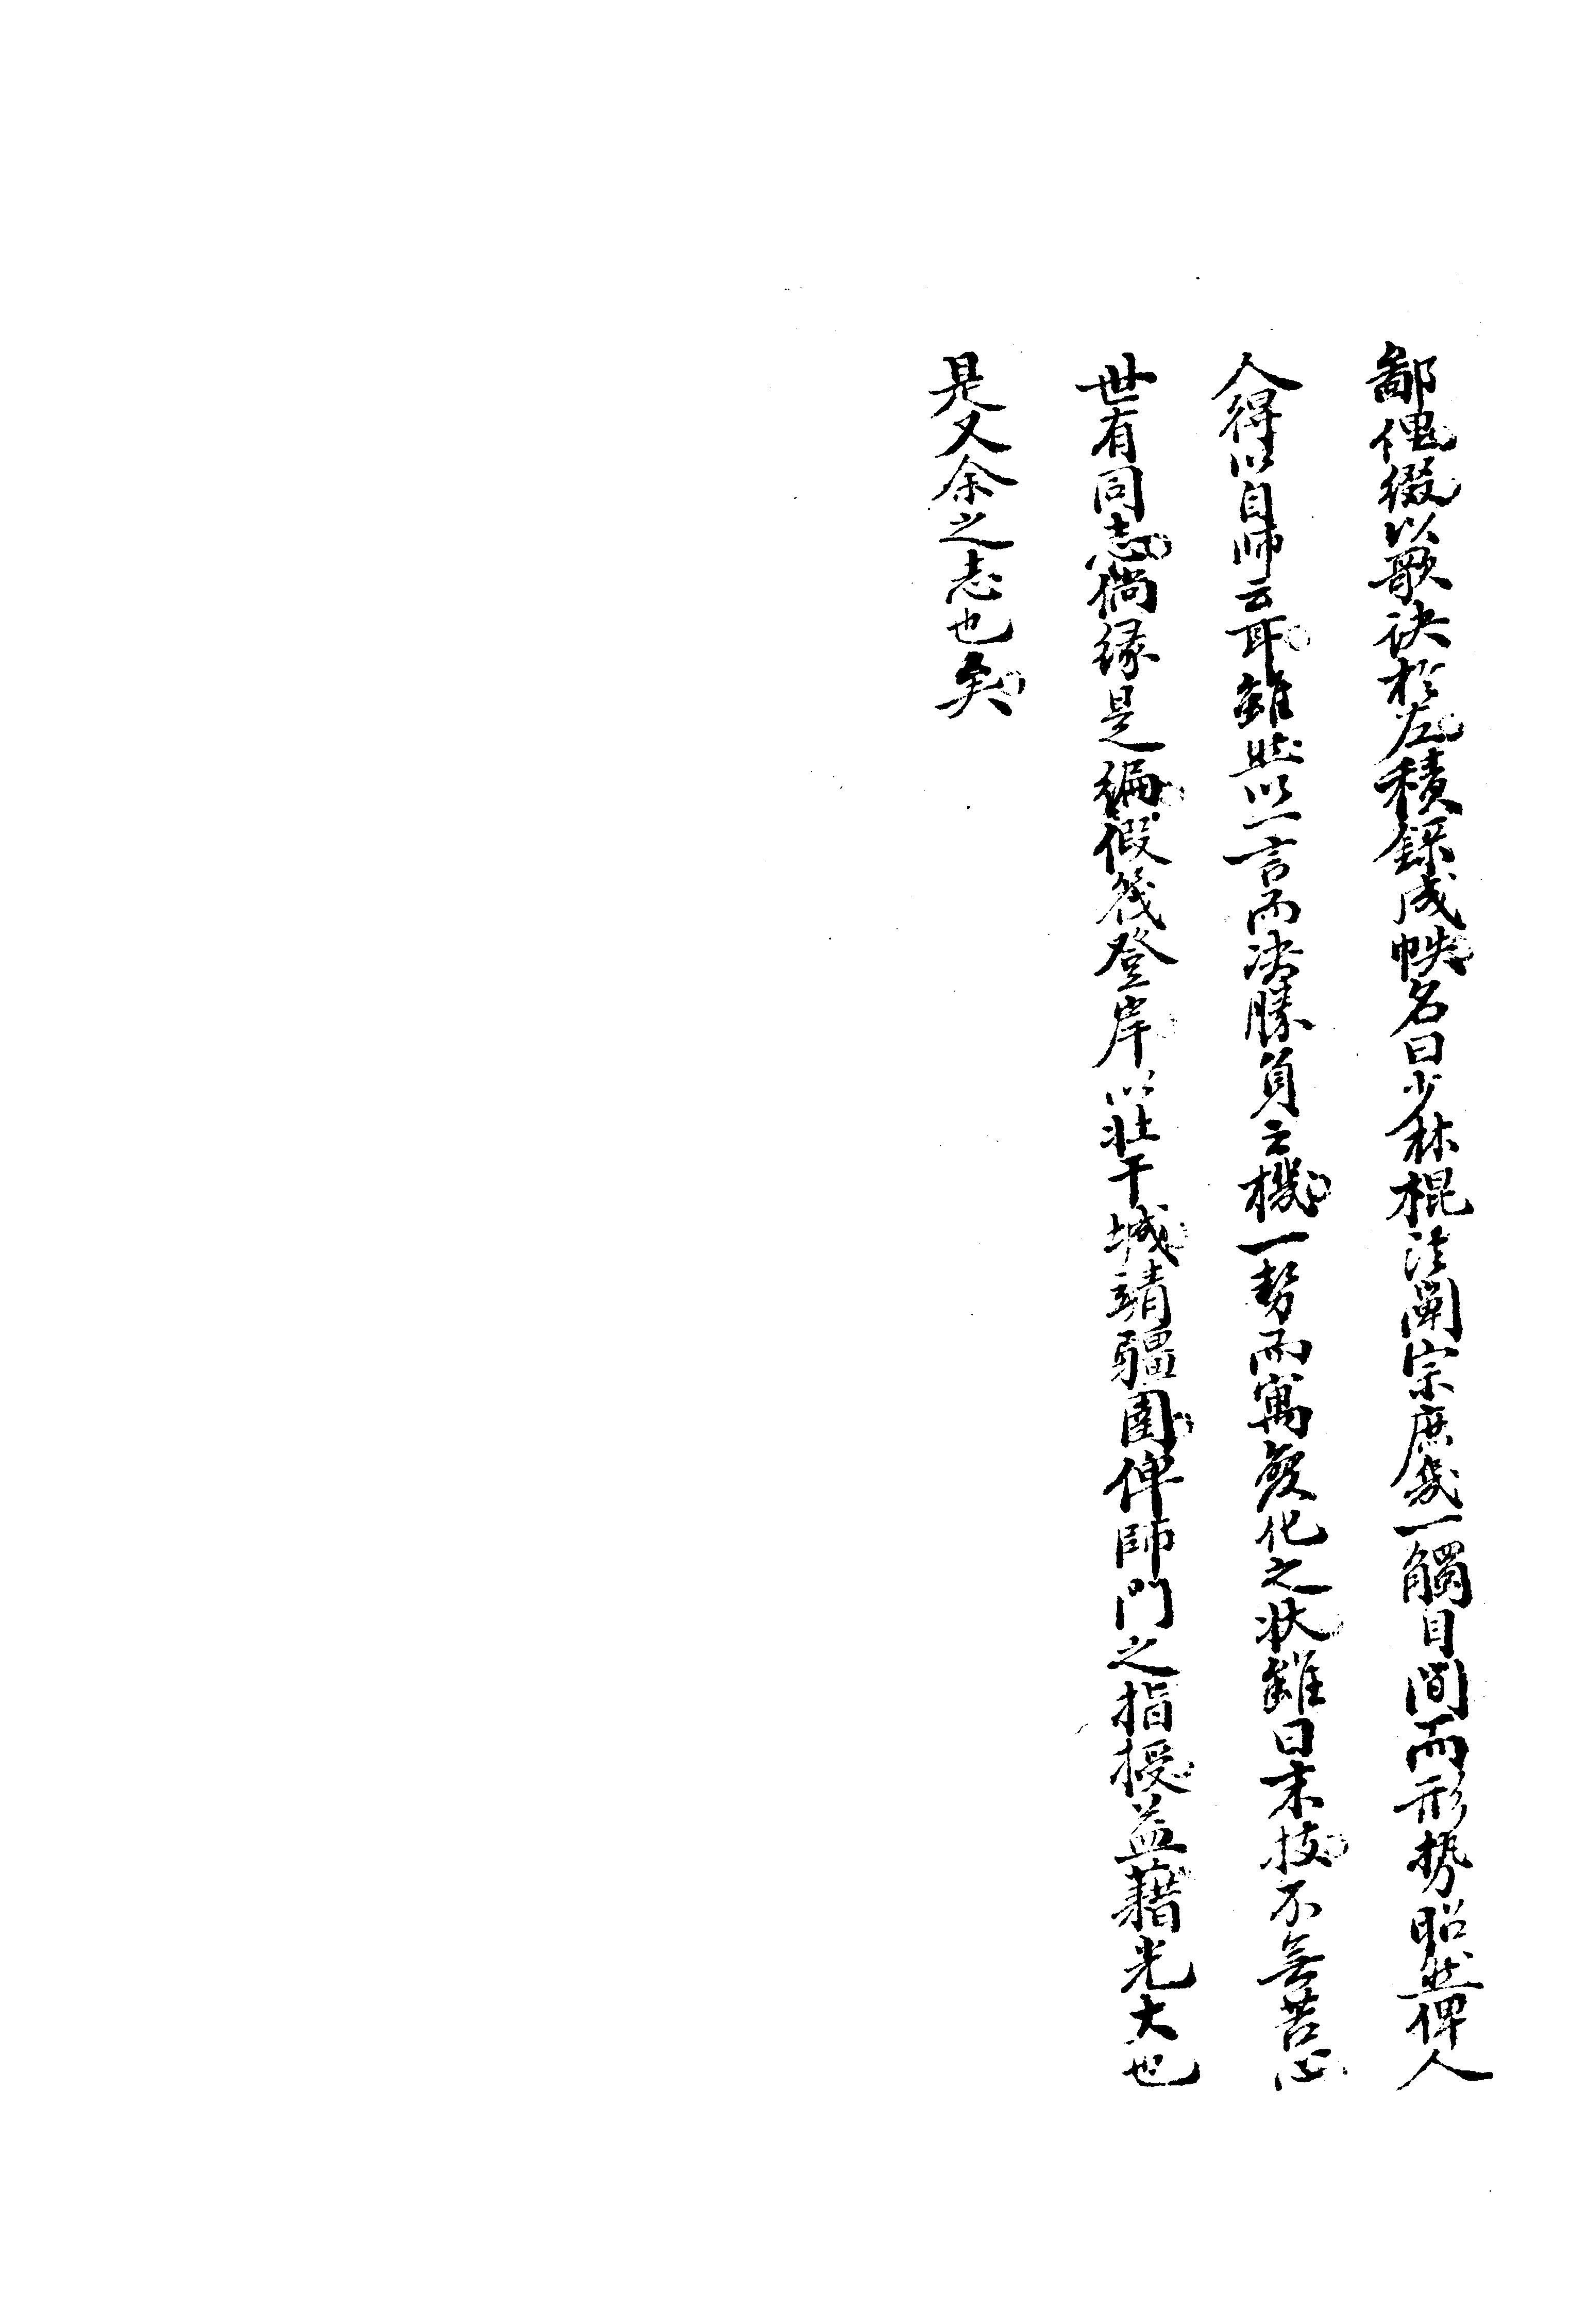 鄙俚綴以歌訣於左積録成帙名曰少林棍法闡宗庶幾一觸目間而形势昭然俾人
人得以自師云耳雖然以一言而决勝負之機一勢而寓變化之状雖曰末技不無苦心
世有同志倘縁是編假筏登岸以壮干城靖疆圉俾師門之指授益藉光大也
是又余之志也矣